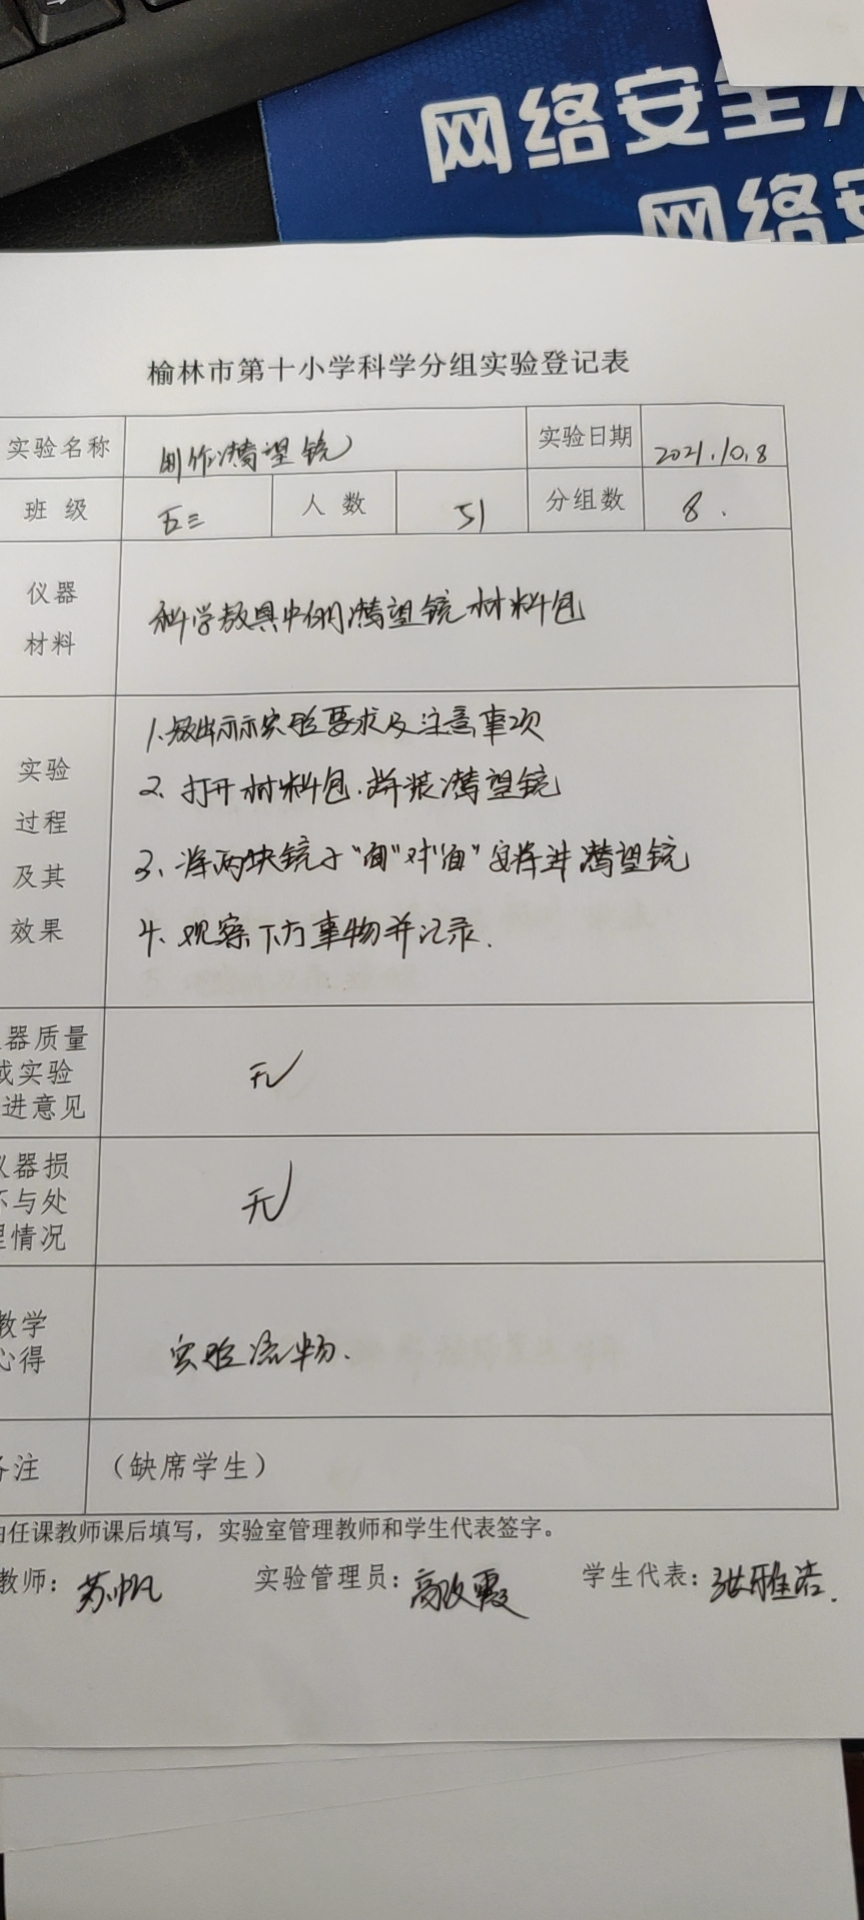 网络安全
网络安
榆林市第十小学科学分组实验登记表
实验名称 制作潜望镜 实验日期 2021.10.8
班 级 五三 人 数 51 分组数 8.
仪器
材料
科学教具中的潜望镜材料包
实验
过程
及其
效果
1.教师出示实验要求及注意事项
2、打开材料包.拼装潜望镜
3、将两块镜子“面”对“面”安装进潜望镜
4、观察下方事物并记录.
器质量
或实验
进意见
无
仪器损
坏与处
理情况
无
教学
心得
实验流畅.
备注 （缺席学生）
由任课教师课后填写，实验室管理教师和学生代表签字。
教师： 苏帆 实验管理员： 高改霞 学生代表： 张雅洁.